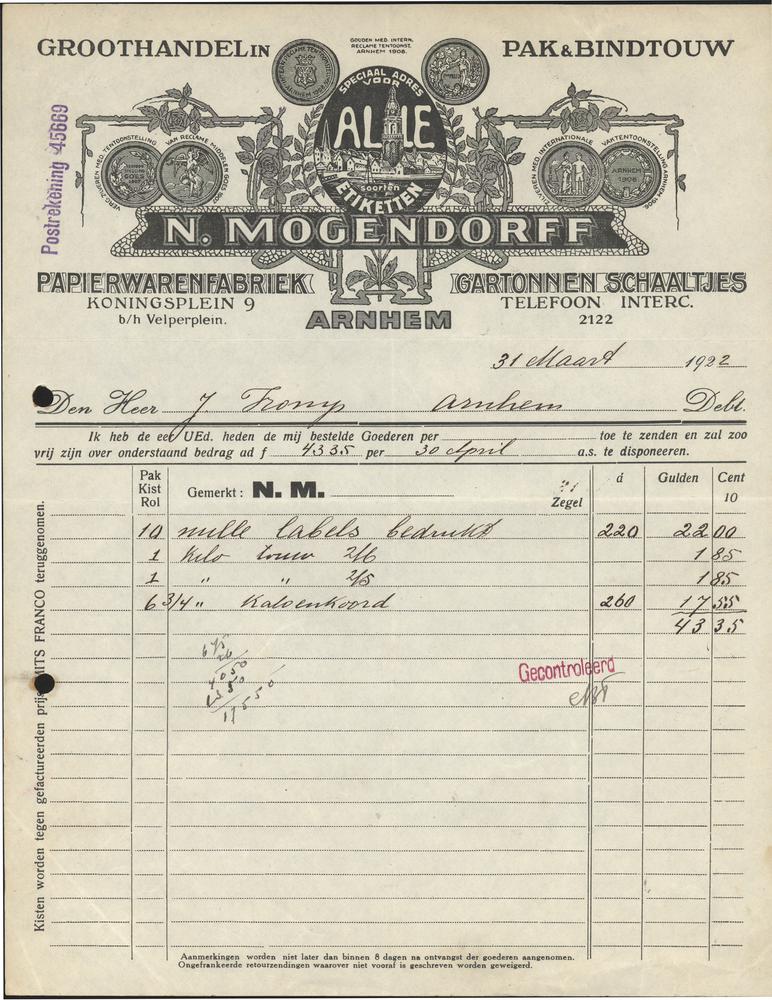 GOUDEN MED. INTERN.
RECLAME TENTOONST.
ARNHEM 1908.
GROOTHANDEL IN
PAK & BINDTOUW
SPECIAAL ADRES
VOOR
ALLE
soorten
ETIKETTEN
ARNHEM
1908
Postrekening 45669
N. MOGENDORFF
PAPIERWARENFABRIEK
CARTONNEN SCHAALTJES
KONINGSPLEIN 9
TELEFOON INTERC.
b/h Velperplein.
ARNHEM
2122
31 Maart 1922
Den Heer J. Tromp Arnhem Debt.
Ik heb de eer UEd. heden de mij bestelde Goederen per toe te zenden en zal zoo
vrij zijn over onderstaand bedrag ad f 4335 per 30 April a.s. te disponeeren.
Pak
Kist
Rol
Gemerkt: N. M.
Zegel
á
Gulden
Cent
10
10 mille labels bedrukt 220 22 00
1 Kilo touw 2/6 1 85
1 " " 2/5 1 85
6 3/4 " Katoenkoord 260 17 55
43 35
675
26
4050
1350
17550
Gecontroleerd
Kisten worden tegen gefactureerden prijs MITS FRANCO teruggenomen.
Aanmerkingen worden niet later dan binnen 8 dagen na ontvangst der goederen aangenomen.
Ongefrankeerde retourzendingen waarover niet vooraf is geschreven worden geweigerd.